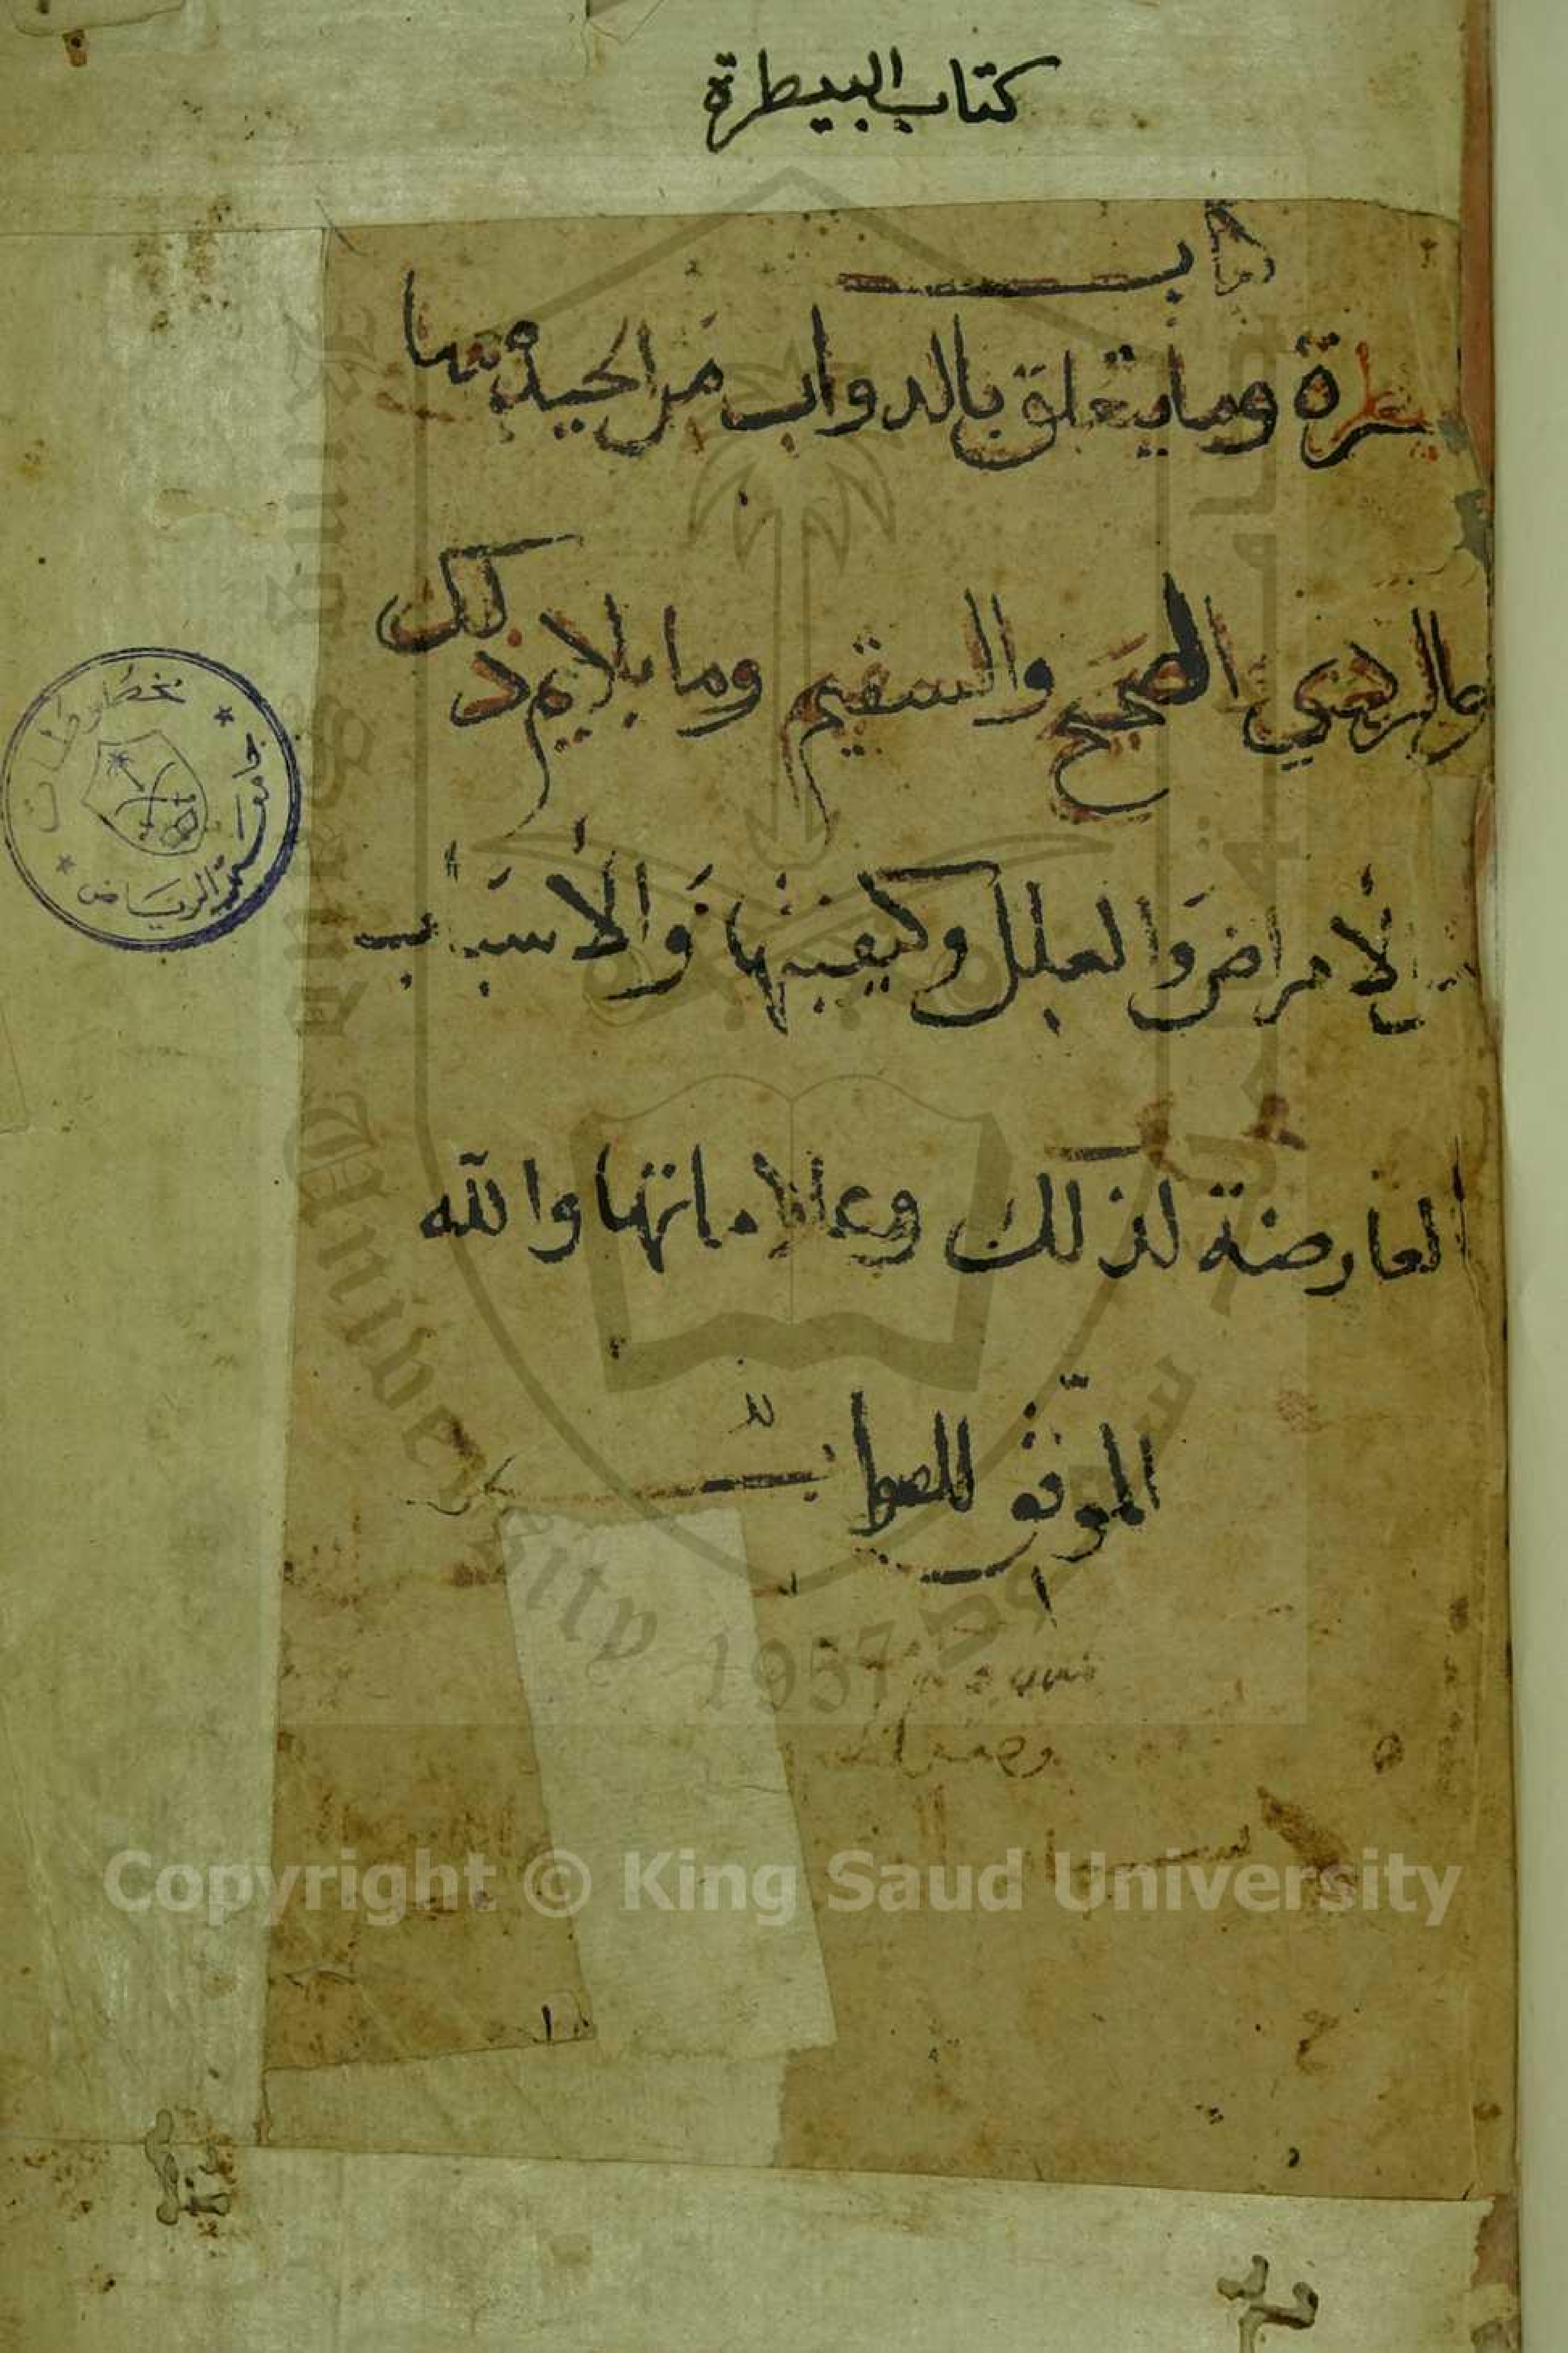 كتاب البيطرة
كتاب
يطرة وما يتعلق بالدواب من الجيد منها
والردي الصحيح والسقيم وما يلايم ذلك
الامراض والعلل وكيفيتها والأسباب
العارضة لذلك وعلاماتها والله
الموفق للصواب
مخطوطات
جامعة الرياض
King Saud University 1957
Copyright © King Saud University